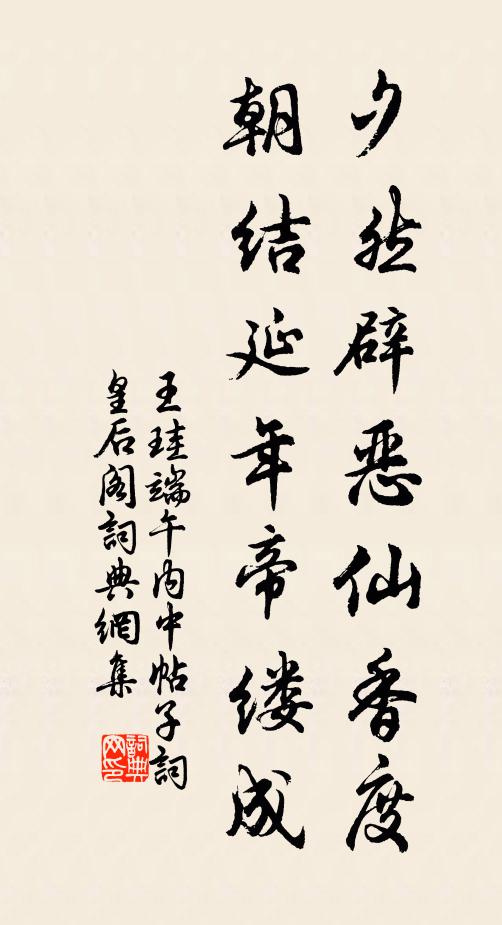 夕然辟惡仙香度
朝结延年帝缕成
王珪端午内中帖子詞
皇后阁詞典網集
詞典网印